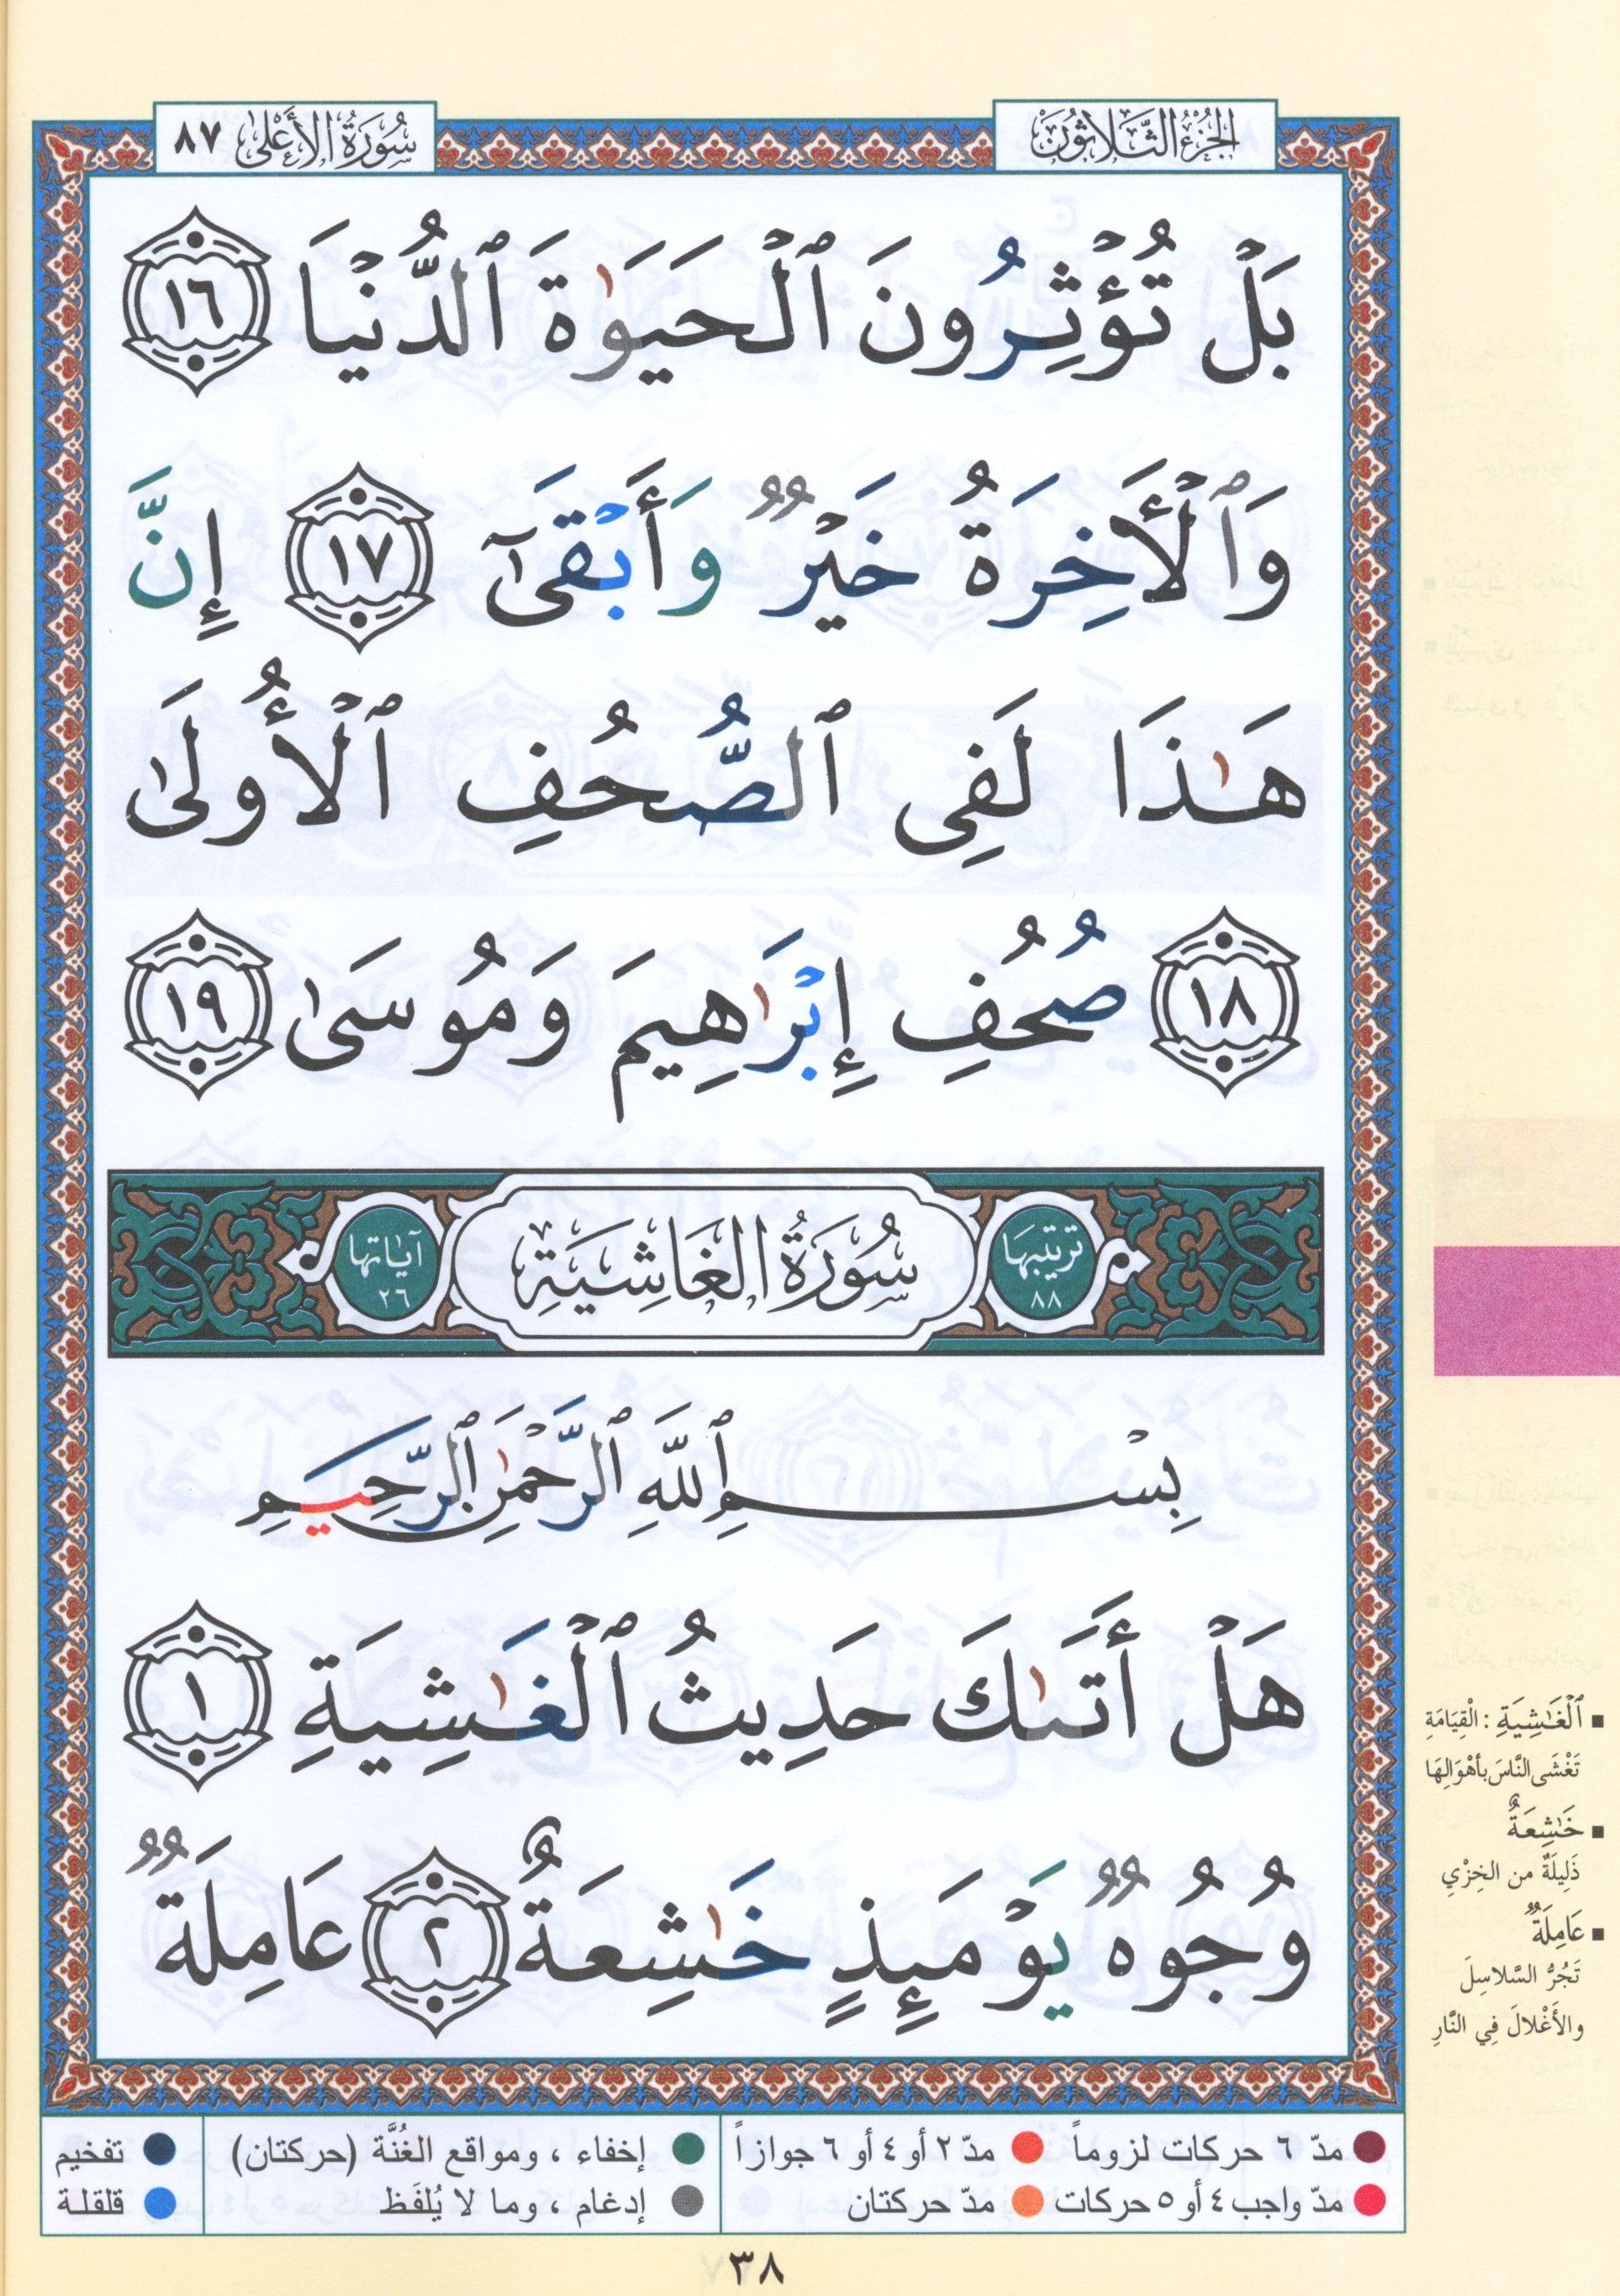 الجزء الثلاثون
سورة الأعلى ٨٧
بَلْ تُؤْثِرُونَ ٱلْحَيَوٰةَ ٱلدُّنْيَا ١٦
وَٱلْأَخِرَةُ خَيْرٌ وَأَبْقَىٰٓ ١٧ إِنَّ
هَـٰذَا لَفِى ٱلصُّحُفِ ٱلْأُولَىٰ
١٨ صُحُفِ إِبْرَٰهِيمَ وَمُوسَىٰ ١٩
ترتيبها ٨٨
سُورَةُ الغَاشِيَةِ
آياتها ٢٦
بِسْمِ ٱللَّهِ ٱلرَّحْمَٰنِ ٱلرَّحِيمِ
هَلْ أَتَىٰكَ حَدِيثُ ٱلْغَـٰشِيَةِ ١
وُجُوهٌ يَوْمَئِذٍ خَـٰشِعَةٌ ٢ عَامِلَةٌ
■ ٱلْغَـٰشِيَةِ : الْقِيَامَةِ
تَغْشَى النَّاسَ بأهْوَالِهَا
■ خَـٰشِعَةٌ
ذَلِيلَةٌ من الخِزْيِ
■ عَامِلَةٌ
تَجُرُّ السَّلاسِلَ
والأَغْلالَ فِي النَّارِ
مدّ ٦ حركات لزوماً
مدّ ٢ أو ٤ أو ٦ جوازاً
مدّ واجب ٤ أو ٥ حركات
مدّ حركتان
إخفاء ، ومواقع الغُنَّة (حركتان)
إدغام ، وما لا يُلفَظ
تفخيم
قلقلة
٣٨